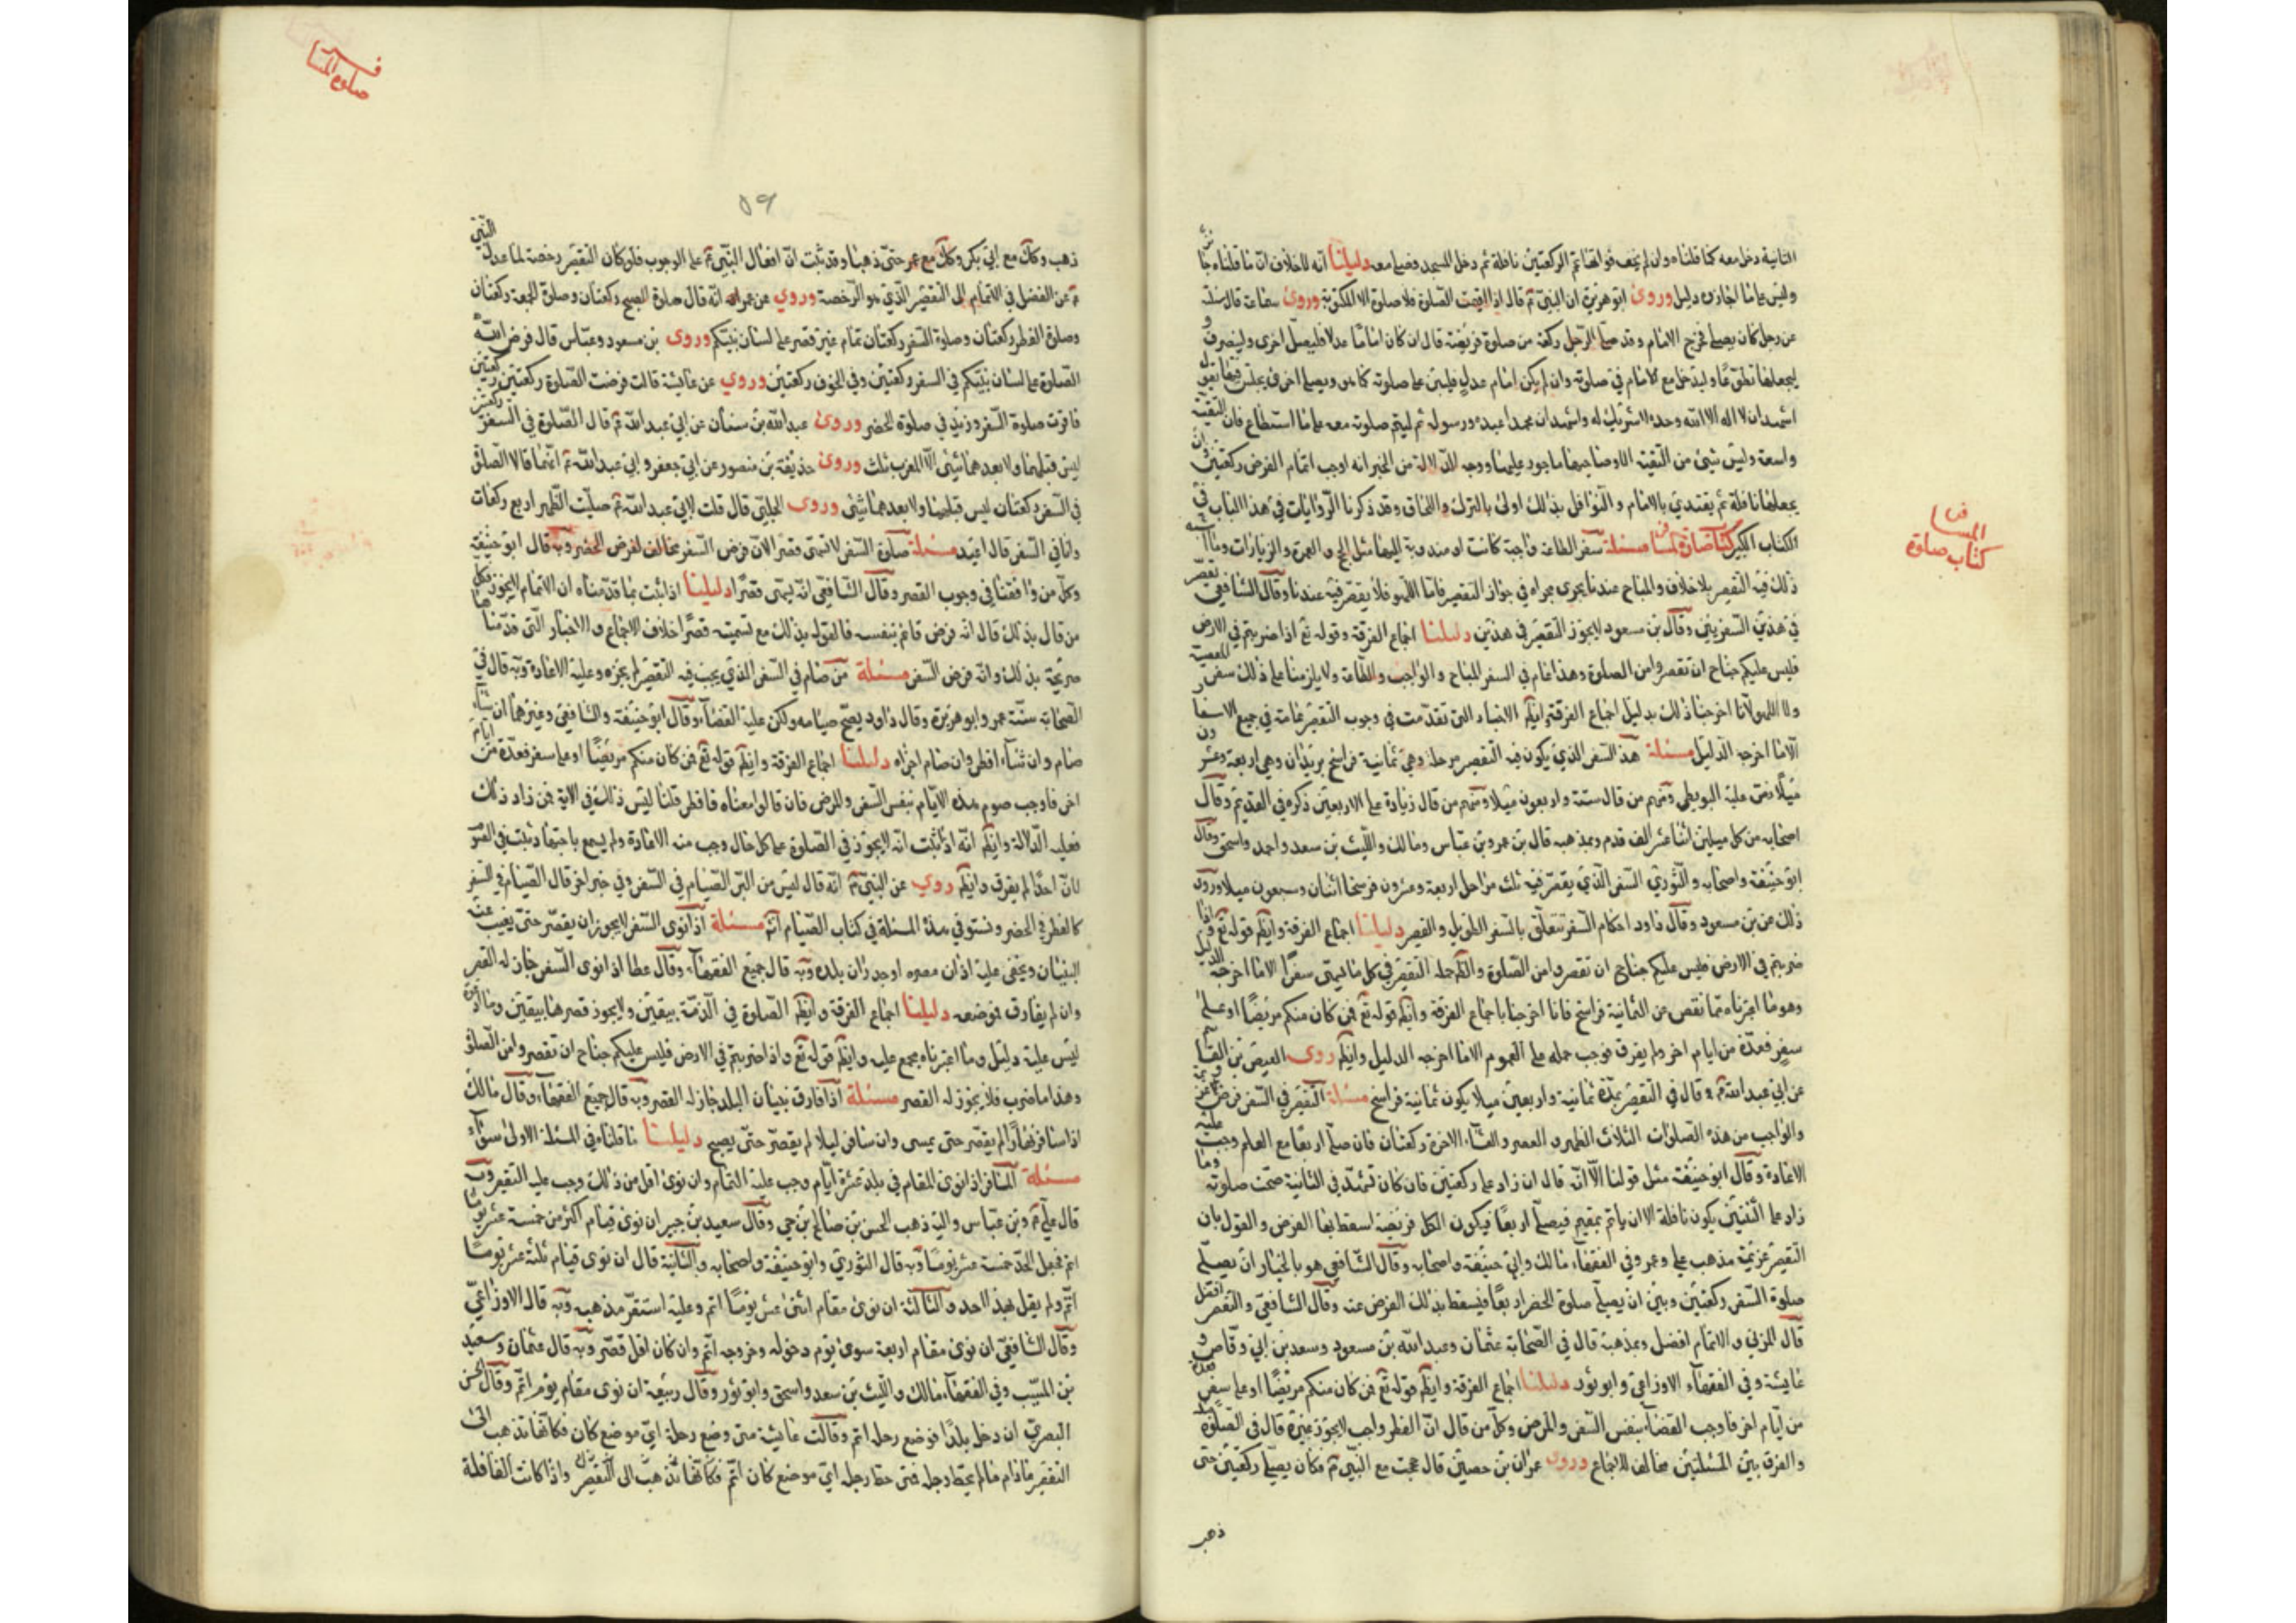 الثانية دخل معه كما قلناه وان لم يخف فواتها تمم الركعتين نافلة ثم دخل المسجد فصلى معه دليلنا انه لا خلاف ان ما قلناه جائز
وليس على ما اجازوه دليل وروى ابو هريرة ان النبي ع قال اذا اقيمت الصلوة فلا صلوة الا المكتوبة وروى سماعة قال سئلته
عن رجل كان يصلي فخرج الامام وقد صلى الرجل ركعة من صلوة فريضة قال ان كان اماما عدلا فليصل اخرى ولينصرف و
ليجعلها تطوعا وليدخل مع الامام في صلوته وان لم يكن امام عدل فليبن على صلوته كما هو ويصلي اخرى يجلس فيها يقول
اشهد ان لا اله الا الله وحده لا شريك له واشهد ان محمدا عبده ورسوله ثم ليتم صلوته معه على ما استطاع فان التقية
واسعة وليس شيء من التقية الا وصاحبها ماجور عليها ووجه الدلالة من الخبر انه اوجب اتمام الفرض ركعتين وان
يجعلها نافلة ثم يقتدي بالامام والنوافل بذلك اولى بالترك واللحاق وقد ذكرنا الروايات في هذا الباب في
الكتاب الكبير كتاب صلوة المسافر مسئلة سفر الطاعة واجبة كانت او مندوبة اليها مثل الحج والعمرة والزيارات وما اشبه
ذلك فيه التقصير بلا خلاف والمباح عندنا يجري مجراه في جواز التقصير فاما اللهو فلا يقصر فيه عندنا وقال الشافعي يقصر
في هذين السفرين وقال بن مسعود لا يجوز التقصير في هذين دليلنا اجماع الفرقة وقوله تع اذا ضربتم في الارض
فليس عليكم جناح ان تقصروا من الصلوة وهذا عام في السفر المباح والواجب والطاعة ولا يلزمنا على ذلك سفر المعصية
ولا اللهو لانا اخرجنا ذلك بدليل اجماع الفرقة وايضا الاخبار التي تقدمت في وجوب التقصير عامة في جميع الاسفار
الا ما اخرجه الدليل مسئلة حد السفر الذي يكون فيه التقصير مرحلة وهي ثمانية فراسخ بريدان وهي اربعة وعشرون
ميلا نص عليه البويطي ومنهم من قال ستة واربعون ميلا ومنهم من قال زيادة على الاربعين ذكره في القديم وقال
اصحابه من كل ميلين اثنا عشر الف قدم وبمذهبه قال بن عمر وبن عباس ومالك والليث بن سعد واحمد واسحق وقال
ابو حنيفة واصحابه والثوري السفر الذي يقصر فيه ثلث مراحل اربعة وعشرون فرسخا اثنان وسبعون ميلا وروى
ذلك عن بن مسعود وقال داود احكام السفر تتعلق بالسفر الطويل والقصير دليلنا اجماع الفرقة وايضا قوله تع واذا
ضربتم في الارض فليس عليكم جناح ان تقصروا من الصلوة والظ حله التقصير في كل ما يسمى سفرا الا ما اخرجه الدليل
وهو ما اعتبرناه مما نقص عن الثمانية فراسخ فانا اخرجنا باجماع الفرقة وايضا قوله تع فمن كان منكم مريضا او على
سفر فعدة من ايام اخر ولم يفرق فوجب حمله على العموم الا ما اخرجه الدليل وايضا روى العيص بن القاسم
عن ابي عبد الله ع قال في التقصير حده ثمانية واربعين ميلا يكون ثمانية فراسخ مسئلة التقصير في السفر فرض وعزيمة
والواجب من هذه الصلوات الثلاث الظهر والعصر والعشاء الاخرة ركعتان فان صلى اربعا مع العلم وجب عليه
الاعادة وقال ابو حنيفة مثل قولنا الا انه قال ان زاد على ركعتين فان كان تشهد في الثانية صحت صلوته وما
زاد على الثنتين يكون نافلة الا ان ياتم بمقيم فيصلي اربعا فيكون الكل فريضة اسقط بها الفرض والقول بان
التقصير عزيمة مذهب علي وعمر وفي الفقهاء مالك وابي حنيفة واصحابه وقال الشافعي هو بالخيار ان يصلي
صلوة السفر ركعتين وبين ان يصلي صلوة الحضر اربعا فيسقط بذلك الفرض عنه وقال الشافعي والتقصير افضل
قال المزني والاتمام افضل وبمذهبه قال في الصحابة عثمان وعبد الله بن مسعود وسعد بن ابي وقاص و
عايشة وفي الفقهاء الاوزاعي وابو ثور دليلنا اجماع الفرقة وايضا قوله تع فمن كان منكم مريضا او على سفر فعدة
من ايام اخر فاوجب القضاء بنفس السفر والمرض وكل من قال ان الفطر واجب لا يجوز غيره قال في الصلوة مثله
والفرق بين المسئلتين مخالف للاجماع وروى عمران بن حصين قال حججت مع النبي ع فكان يصلي ركعتين حتى
ذهب
في
المسا
كتاب صلوة
فـ
صلوة المسا
٥٩
ذهب وكذلك مع ابي بكر وكذلك مع عمر حتى ذهبا وقد ثبت ان افعال النبي ع على الوجوب فلو كان التقصير رخصة لما عدل النبي
ع عن الفضل في الاتمام الى التقصير الذي هو الرخصة وروي عن عمر انه قال صلوة الصبح ركعتان وصلوة الجمعة ركعتان
وصلوة الفطر ركعتان وصلوة السفر ركعتان تمام غير قصر على لسان نبيكم وروى بن مسعود وعباس قال فرض الله
الصلوة على لسان نبيكم في السفر ركعتين وفي الخوف ركعتين وروي عن عايشة قالت فرضت الصلوة ركعتين ركعتين
فاقرت صلوة السفر وزيد في صلوة الحضر وروى عبد الله بن سنان عن ابي عبد الله ع قال الصلوة في السفر ركعتين
ليس قبلهما ولا بعدهما شيء الا المغرب ثلث وروى حذيفة بن منصور عن ابي جعفر وابي عبد الله ع انهما قالا الصلوة
في السفر ركعتان ليس قبلهما ولا بعدهما شيء وروى الحلبي قال قلت لابي عبد الله ع صليت الظهر اربع ركعات
وانا في السفر قال اعد مسئلة صلوة السفر لا تسمى قصرا لان فرض السفر مخالف لفرض الحضر وبه قال ابو حنيفة
وكل من وافقنا في وجوب القصر وقال الشافعي انه يسمى قصرا دليلنا اذا ثبت بما قدمناه ان الاتمام لا يجوز فكل
من قال بذلك قال انه فرض قائم بنفسه فالقول بذلك مع تسميته قصرا خلاف الاجماع والاخبار التي قدمناها
صريحة بذلك وانه فرض السفر مسئلة من صام في السفر الذي يجب فيه التقصير لم يجزه وعليه الاعادة وبه قال في
الصحابة ستة عمر وابو هريرة وقال داود يصح صيامه ولكن عليه القضاء وقال ابو حنيفة والشافعي وغيرهما ان شاء
صام وان شاء افطر وان صام اجزاه دليلنا اجماع الفرقة وايضا قوله تع فمن كان منكم مريضا او على سفر فعدة من ايام
اخر فاوجب صوم هذه الايام بنفس السفر والمرض فان قالوا معناه فافطر قلنا ليس ذلك في الاية فمن زاد ذلك
فعليه الدلالة وايضا انه اذا ثبت انه لا يجوز في الصلوة على كل حال وجب منه الاعادة ولم يسمع باحتها ثبت في الصوم
لان احدا لم يفرق وايضا روي عن النبي ع انه قال ليس من البر الصيام في السفر وفي خبر اخر قال الصيام في السفر
كالفطر في الحضر ونستوفي هذه المسئلة في كتاب الصيام انش مسئلة اذا نوى السفر لا يجوز ان يقصر حتى يغيب عنه
البنيان ويخفى عليه اذان مصره او جدران بلده وبه قال جميع الفقهاء وقال عطا اذا نوى السفر جاز له القصر
وان لم يفارق موضعه دليلنا اجماع الفرقة وايضا الصلوة في الذمة بيقين ولا يجوز قصرها بيقين وما ادعوه
ليس عليه دليل وما اعتبرناه مجمع عليه وايضا قوله تع واذا ضربتم في الارض فليس عليكم جناح ان تقصروا من الصلوة
وهذا ما ضرب فلا يجوز له القصر مسئلة اذا فارق بنيان البلد جاز له القصر وبه قال جميع الفقهاء وقال مالك
اذا سافر نهارا لم يقصر حتى يمسي وان سافر ليلا لم يقصر حتى يصبح دليلنا ما قلناه في المسئلة الاولى سواء
مسئلة المسافر اذا نوى المقام في بلد عشرة ايام وجب عليه التمام وان نوى اقل من ذلك وجب عليه التقصير وبه
قال علي ع وبن عباس واليه ذهب الحسن بن صالح بن حي وقال سعيد بن جبير ان نوى قيام اكثر من خمسة عشر يوما
اتم فجعل الحد خمسة عشر يوما وبه قال الثوري وابو حنيفة واصحابه والثانية قال ان نوى قيام ثلثة عشر يوما
اتم ولم يقل بهذا احد والثالثة ان نوى مقام اثنى عشر يوما اتم وعليه استقر مذهبه وبه قال الاوزاعي
وقال الشافعي ان نوى مقام اربعة سوى يوم دخوله وخروجه اتم وان كان اقل قصر وبه قال عثمان وسعيد
بن المسيب وفي الفقهاء مالك والليث بن سعد واسحق وابو ثور وقال ربيعة ان نوى مقام يوم اتم وقال الحسن
البصري ان دخل بلدا فوضع رحله اتم وقالت عايشة متى وضع رحله اي موضع كان فكانها تذهب الى
التقصير ما دام ما لم يحط رحله فمتى حط رحله اي موضع كان اتم فكانها تذهب الى ان التقصير واذا كانت القافلة